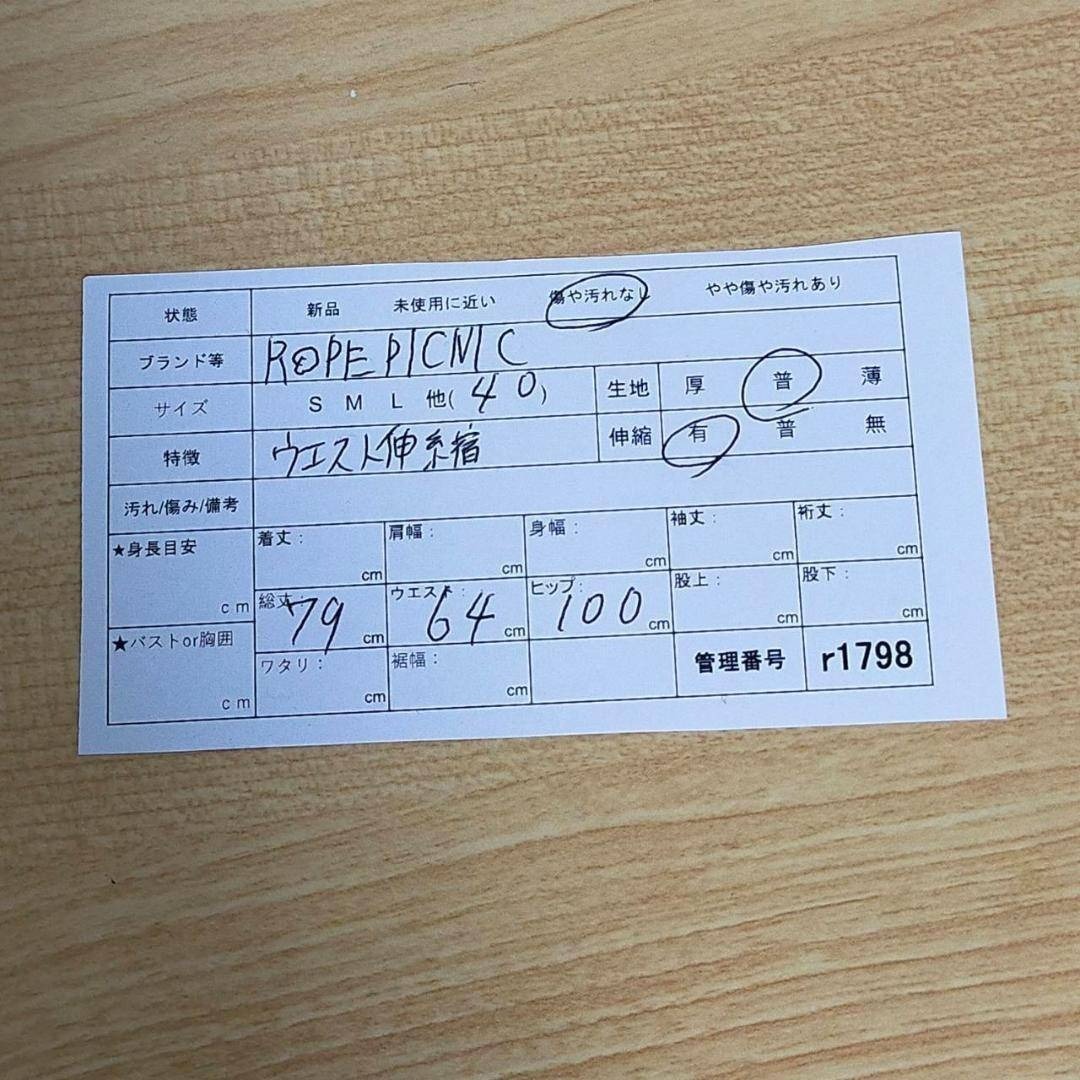 状態 新品 未使用に近い 傷や汚れなし やや傷や汚れあり
ブランド等 ROPE PICNIC
サイズ S M L 他(40) 生地 厚 普 薄
特徴 ウエスト伸縮 伸縮 有 普 無
汚れ/傷み/備考
★身長目安 cm 着丈: cm 肩幅: cm 身幅: cm 袖丈: cm 裄丈: cm
総丈: 79 cm ウエスト: 64 cm ヒップ: 100 cm 股上: cm 股下: cm
★バストor胸囲 cm ワタリ: cm 裾幅: cm 管理番号 r1798